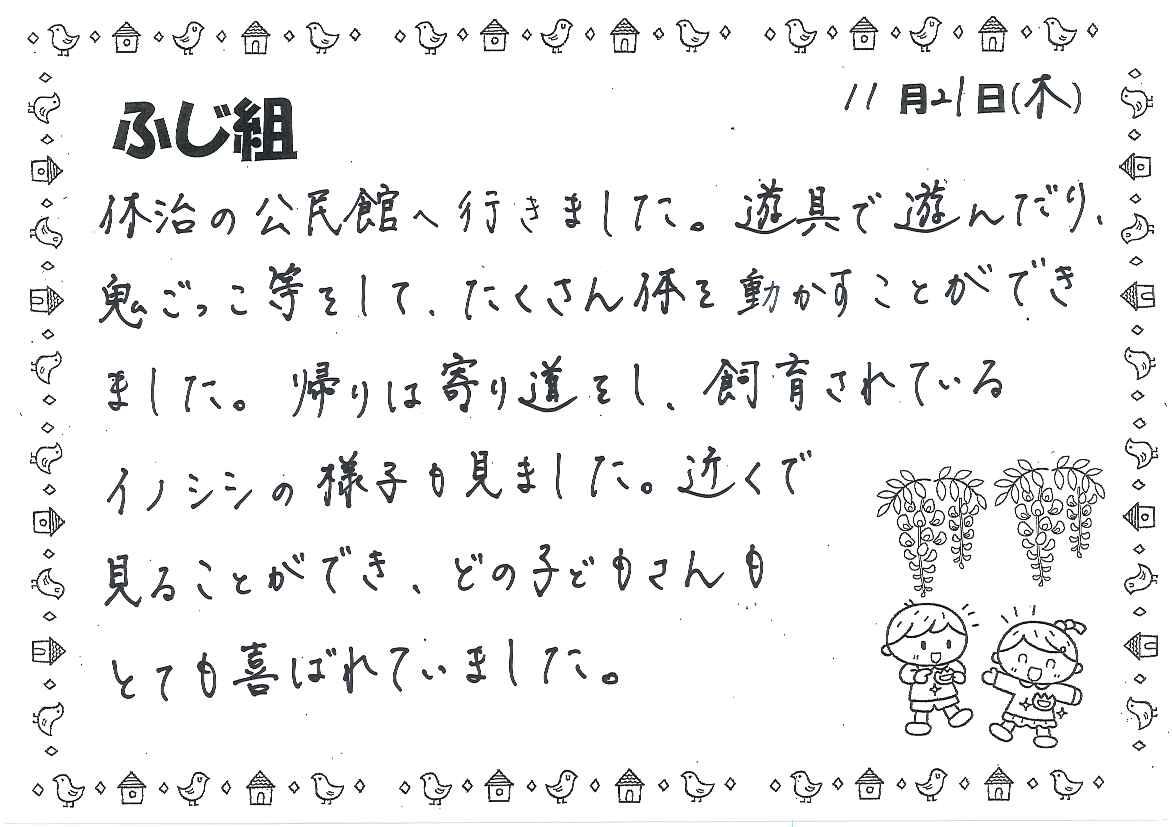 ふじ組
11月21日(木)
休治の公民館へ行きました。遊具で遊んだり、
鬼ごっこ等をして、たくさん体を動かすことができ
ました。帰りは寄り道をし、飼育されている
イノシシの様子も見ました。近くで
見ることができ、どの子どもさんも
とても喜ばれていました。